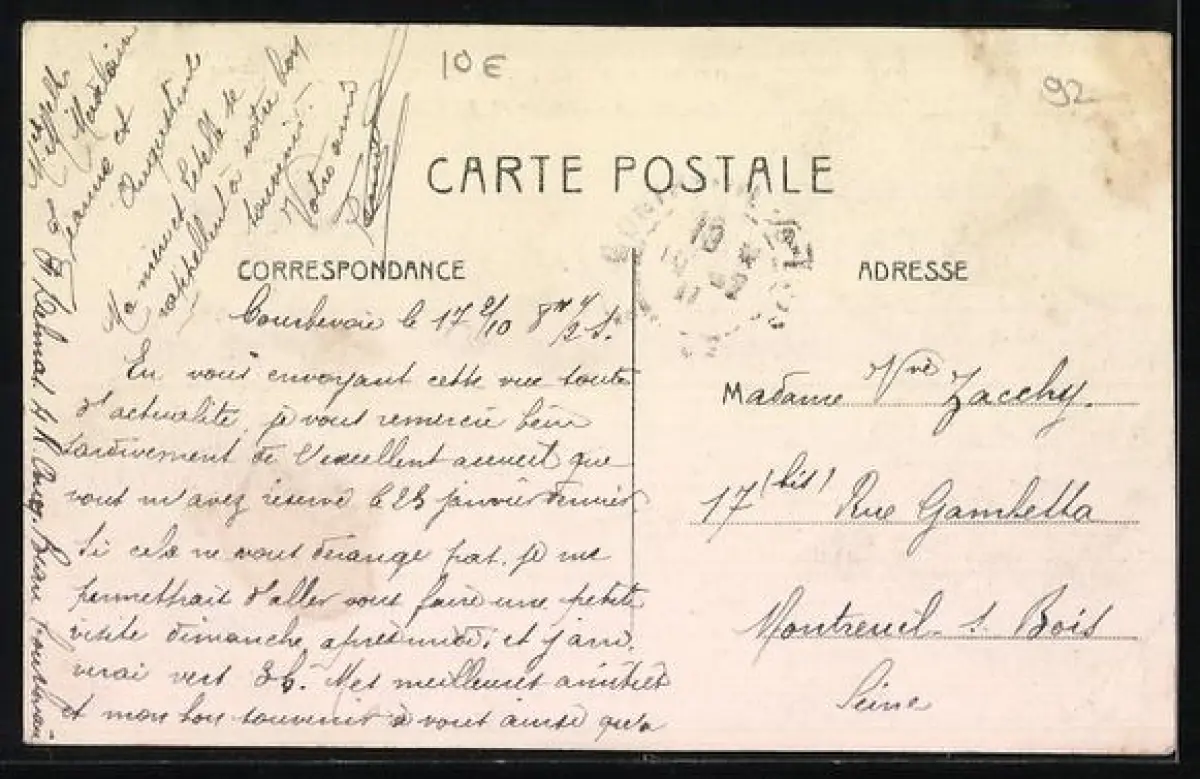 10 €
92
CARTE POSTALE
CORRESPONDANCE
ADRESSE
Courbevoie le 17 2/10 8h 1/2 S.
En vous envoyant cette vue toute
d'actualité, je vous remercie bien
tardivement de l'excellent accueil que
vous m'avez réservé le 23 janvier dernier
Si cela ne vous dérange pas, je me
permettrais d'aller vous faire une petite
visite dimanche après midi, et j'arri
verai vers 3h. Mes meilleures amitiés
et mon bon souvenir à vous ainsi qu'à
Jeanne et
Augustine
Ma mère et Estelle se
rappellent à votre bon
souvenir.
Votre ami
Madame Vve Zacchy.
17 (bis) Rue Gambetta
Montreuil s. Bois
Seine